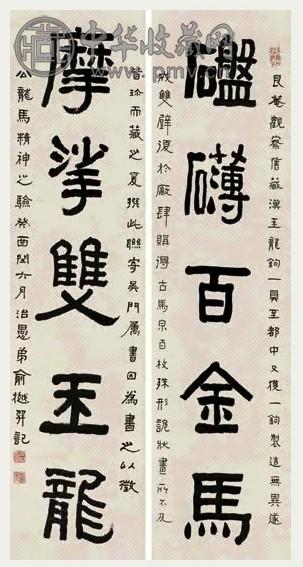 中华收藏网
www.pmv.cn
艮菴觀察舊藏漢玉龍鉤一具至都中又獲一鉤製造無異遂
礛礴百金馬
成雙璧復於廠肆購得古馬泉百枚殊形詭狀畫所不及
皆珍而藏之爰撰此聯寄吳門屬書因為書之以徵
摩挲雙玉龍
公龍馬精神之驗癸酉閏六月治愚弟俞樾并記